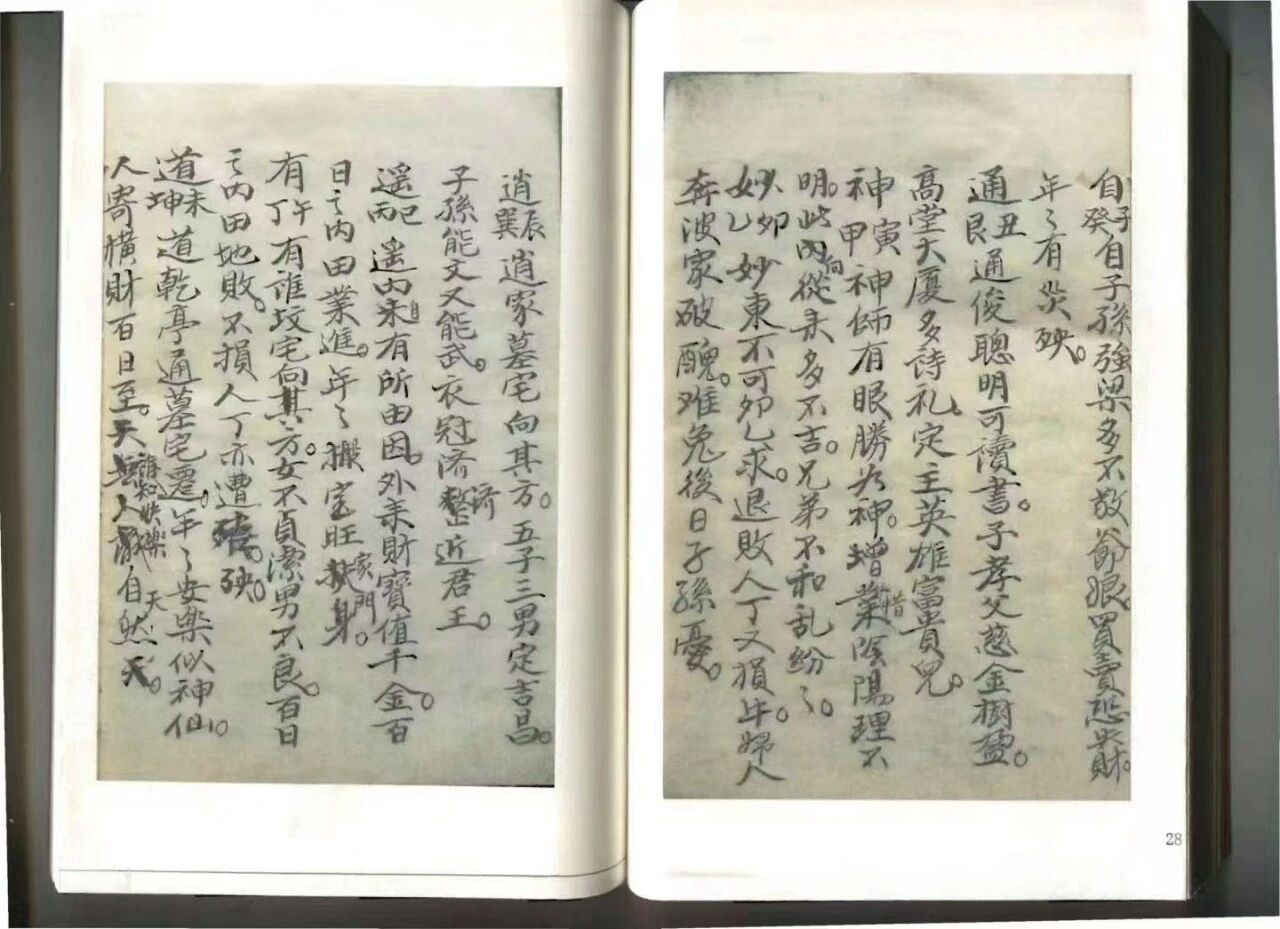 自子癸自子孫強梁多不敬爺娘買賣恐失財。
年〻有災殃。
通丑艮通俊聰明可讀書。子孝父慈金樹盈。
高堂大廈多詩礼。定主英雄富貴兒。
神寅甲神師有眼勝为神。增業惜陰陽理不
明。此內向從来多不吉。兄弟不和乱紛〻。
妙卯乙妙東不可卯乙求。退敗人丁又損牛。婦人
奔波家破醜。难免後日子孫憂。
逍辰巽逍家墓宅向其方。五子三男定吉昌。
子孫能文又能武。衣冠济济整近君王。
遥巳丙遥内来有所由因。外来財寶值千金。百
日之内田業進。年〻搬宝旺家門。身。
有午丁有誰坟宅向其方。女不貞潔男不良。百日
之内田地敗。不損人丁亦遭殃。
道未坤道乾亭通墓宅遷。年〻安樂似神仙。
人寄橫財百日至。天誰知快樂人自然天。
28